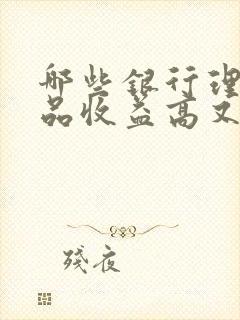 哪些银行理
品收益高又
残夜